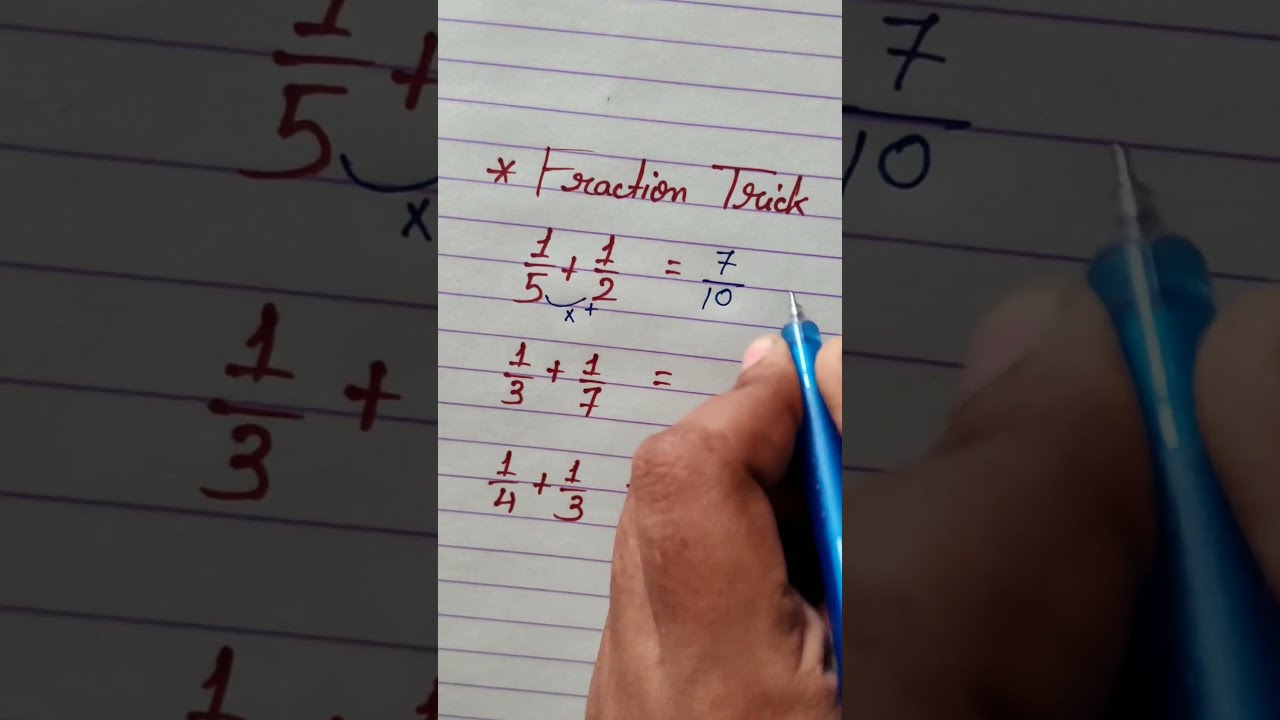 * Fraction Trick
1/5 + 1/2 = 7/10
x +
1/3 + 1/7 =
1/4 + 1/3